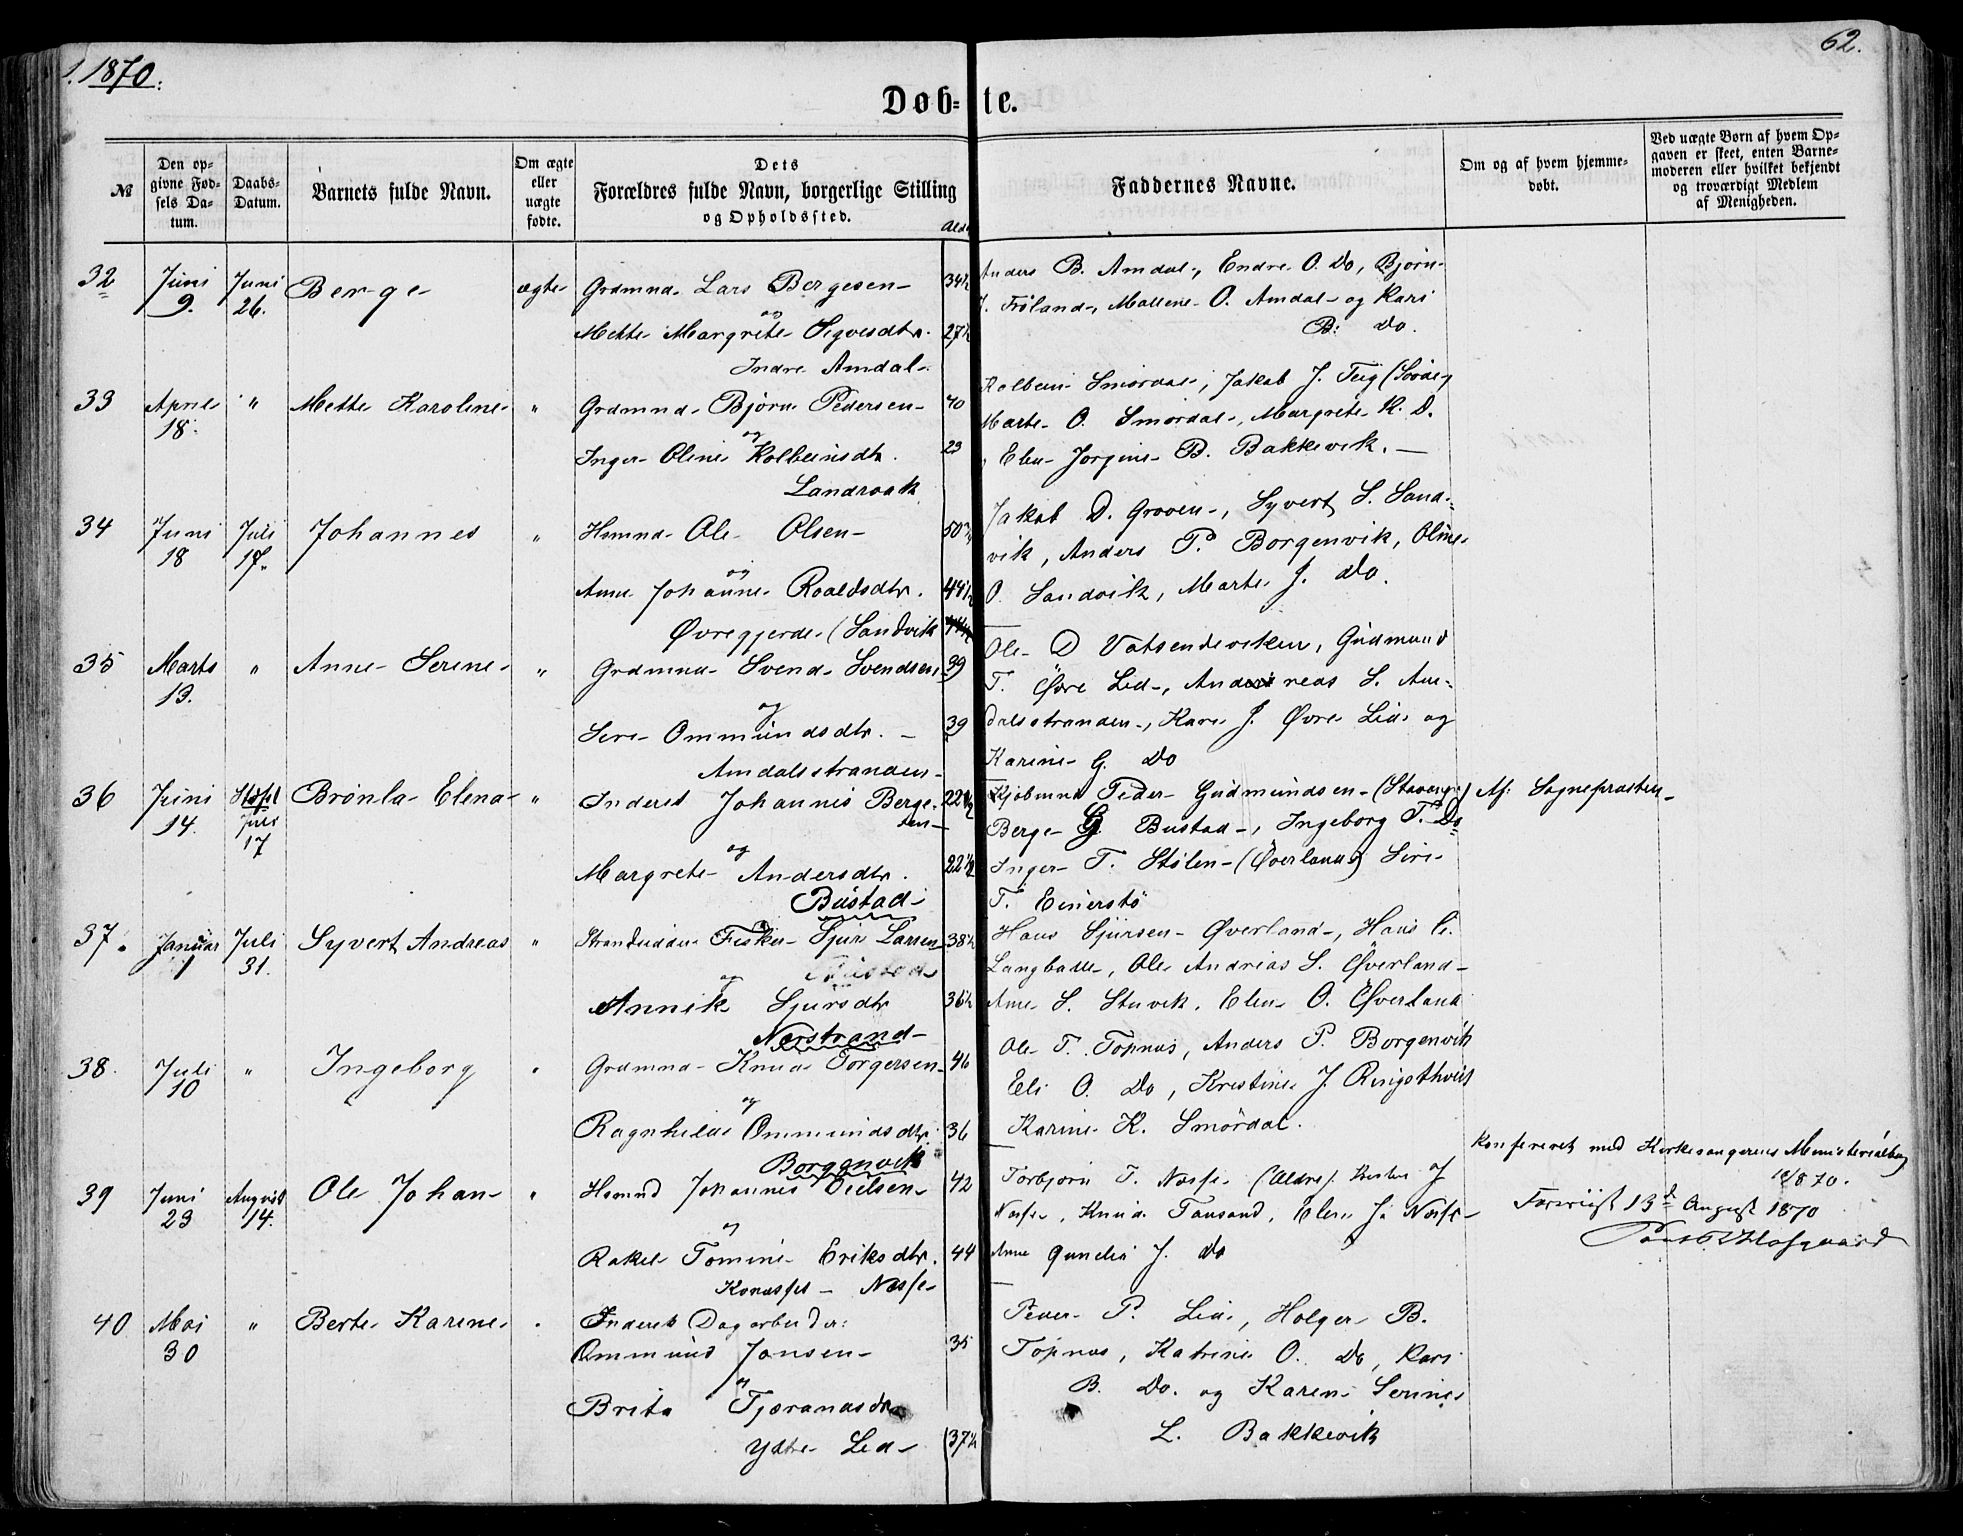 1870.
62.
Døb-te.
№
Den op-
givne Fød-
sels Da-
tum.
Daabs-
Datum.
Barnets fulde Navn.
Om ægte
eller
uægte
fødte.
Dets
Forældres fulde Navn, borgerlige Stilling
og Opholdssted.
Faddernes Navne.
Om og af hvem hjemme-
døbt.
Ved uægte Børn af hvem Op-
gaven er skeet, enten Barne-
moderen eller hvilket bekjendt
og troværdigt Medlem
af Menigheden.
32 Juni Juni Berge ægte Grdmnd. Lars Bergesen 34½
9. 26.
og
Mette Margrete Sigvesdtr. 27½
Indre Amdal
Anders B. Amdal, Endre O. Do, Bjørn
J. Frøland, Mallene O. Amdal og Kari
B. Do.
33 April " Mette Karoline " Grdmnd. Bjørn Pedersen 40
18.
og
Inger Oline Kolbeinsdtr. 23
Landraak
Kolbein Smørdal, Jakob J. Teig
Marte O. Smørdal, Margrete K. D.
Elen Jorgine B. Bakkevik.
34 Juni Juli Johannes " Hmnd. Ole Olsen 50
18 17.
og
Anne Johanne Roaldsdtr. 44½
Øvregjerde (Sandvik
Jakob D. Groven, Syvert S. Sand-
vik, Anders P. Borgenvik, Oline
O. Sandvik, Marte J. Do.
35 Marts " Anne Serine " Grdmnd. Svend Svendsen 39
13.
og
Siri Ommundsdtr. 39
Amdalsstranden
Ole D Vatsendeviken, Gudmund
T. Øvre Lid, Andreas S. Am-
dalsstranden, Kari J. Øvre Lid og
Karine G. Do
36 Juni Brønla Elena " Inderst Johannes Berge- 22½
14. Juli sen
17
og
Margrete Andersdtr. 22½
Bustad
Kjøbmnd Peder Gudmundsen (Stavanger)
Berge G. Bustad, Ingeborg T. Do
Inger T. Stølen (Øverland) Siri
T. Einerstø
Af Sognepræsten
37. Januar Juli Syvert Andreas " Strandsidder Fisker Sjur Larsen 38½
1 31.
og
Annik Sjursdtr 36½
Nerstrand
Hans Sjursen Øverland, Hans
Langballe, Ole Andreas S. Øverland
Ane S. Stuvik, Elen O. Øverland
38. Juli " Ingeborg " Grdmnd. Knud Torgersen 46
10
og
Ragnhilde Ommundsdtr. 36
Borgenvik
Ole T. Topnes, Anders P. Borgenvik
Eli O. Do, Kristine J. Ringsthveit
Karine K. Smørdal.
39 Juni August Ole Johan " Hmnd Johannes Nielsen 42
23 14.
og
Rakel Tomine Eriksdtr. 44
Næsse
Torbjørn T. Næsse (Ældre) J
Næsse, Knud Tansand, Elen J. Næsse
Anne Gundla J. Do
Konfereret med Kirkesangerens Ministerialbog
1870.
13d August 1870
40 Mai " Berte Karine " Inderst Dagarbeider:
30 Ommund Jonsen 35
og
Brita Tjeranasdtr
Ydtre Lid 37½
Peder P. Lid, Holger B.
Topnes, Katrine O. Do, Kari
B. Do. og Karen Serine
L. Bakkevik